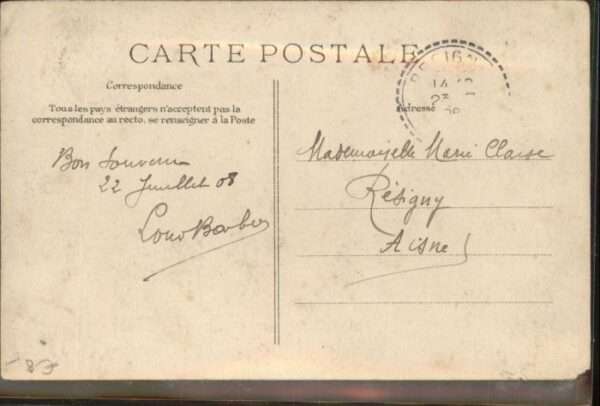 CARTE POSTALE
Correspondance
Tous les pays étrangers n'acceptent pas la
correspondance au recto. se renseigner à la Poste
Adresse
Bon Souvenir
22 Juillet 08
Mademoiselle Marie Claise
Résigny
Aisne